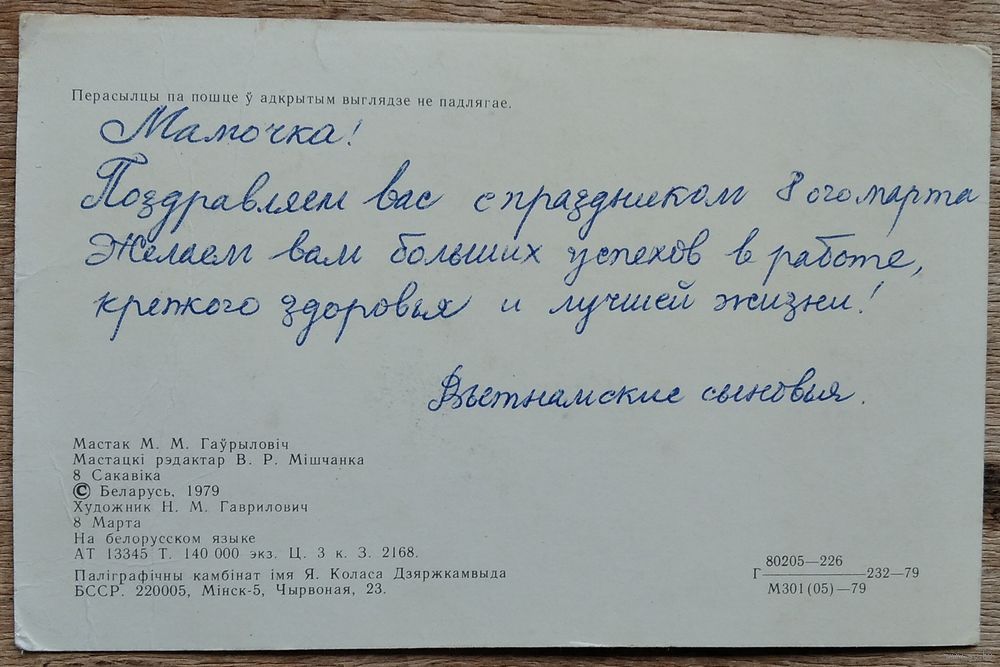 Перасылцы па пошце ў адкрытым выглядзе не падлягае.
Мамочка!
Поздравляем вас с праздником 8 ого марта
Желаем вам больших успехов в работе,
крепкого здоровья и лучшей жизни!
Вьетнамские сыновья.
Мастак М. М. Гаўрыловіч
Мастацкі рэдактар В. Р. Мішчанка
8 Сакавіка
© Беларусь, 1979
Художник Н. М. Гаврилович
8 Марта
На белорусском языке
АТ 13345 Т. 140 000 экз. Ц. 3 к. З. 2168.
Паліграфічны камбінат імя Я. Коласа Дзяржкамвыда
БССР. 220005, Мінск-5, Чырвоная, 23.
80205—226
Г———232—79
М301(05)—79